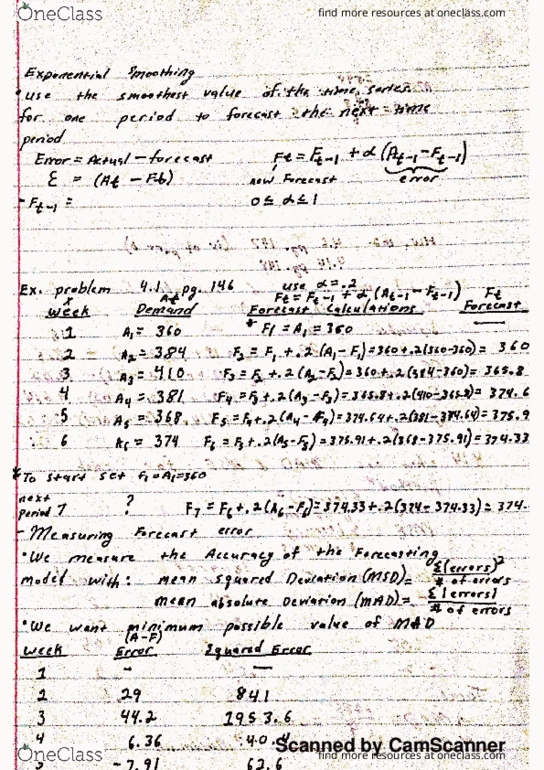 OneClass
find more resources at oneclass.com
Exponential Smoothing
• use the smoothest value of the time series
for one period to forecast the next time
period
Error = Actual - forecast Ft = Ft-1 + α (At-1 - Ft-1)
ε = (At - Ft) new Forecast error
- Ft-1 = 0 ≤ α ≤ 1
Ex. problem 4.1 pg. 146 use α = .2
At Ft = Ft-1 + α (At-1 - Ft-1) Ft
Week Demand Forecast Calculations Forecast
1 A1 = 360 * F1 = A1 = 360 —
2 A2 = 384 F2 = F1 + .2 (A1 - F1) = 360 + .2(360-360) = 360
3 A3 = 410 F3 = F2 + .2 (A2 - F2) = 360 + .2(384-360) = 365.8
4 A4 = 381 F4 = F3 + .2 (A3 - F3) = 365.8 + .2(410-365.8) = 374.6
5 A5 = 368 F5 = F4 + .2 (A4 - F4) = 374.64 + .2(381-374.64) = 375.9
6 A6 = 374 F6 = F5 + .2 (A5 - F5) = 375.91 + .2(368-375.91) = 374.33
* To start set F1 = A1 = 360
next
period 7 ? F7 = F6 + .2 (A6 - F6) = 374.33 + .2(374-374.33) = 374.
- Measuring Forecast error
• We measure the Accuracy of the Forecasting
model with: mean squared Deviation (MSD) = Σ(errors)² / # of errors
mean absolute Deviation (MAD) = Σ|errors| / # of errors
• We want minimum possible value of MAD
(A-F)
Week Error Squared Error
1 - —
2 29 841
3 44.2 1953.6
4 6.36 40.4
Scanned by CamScanner
5 -7.91 62.6
OneClass
find more resources at oneclass.com